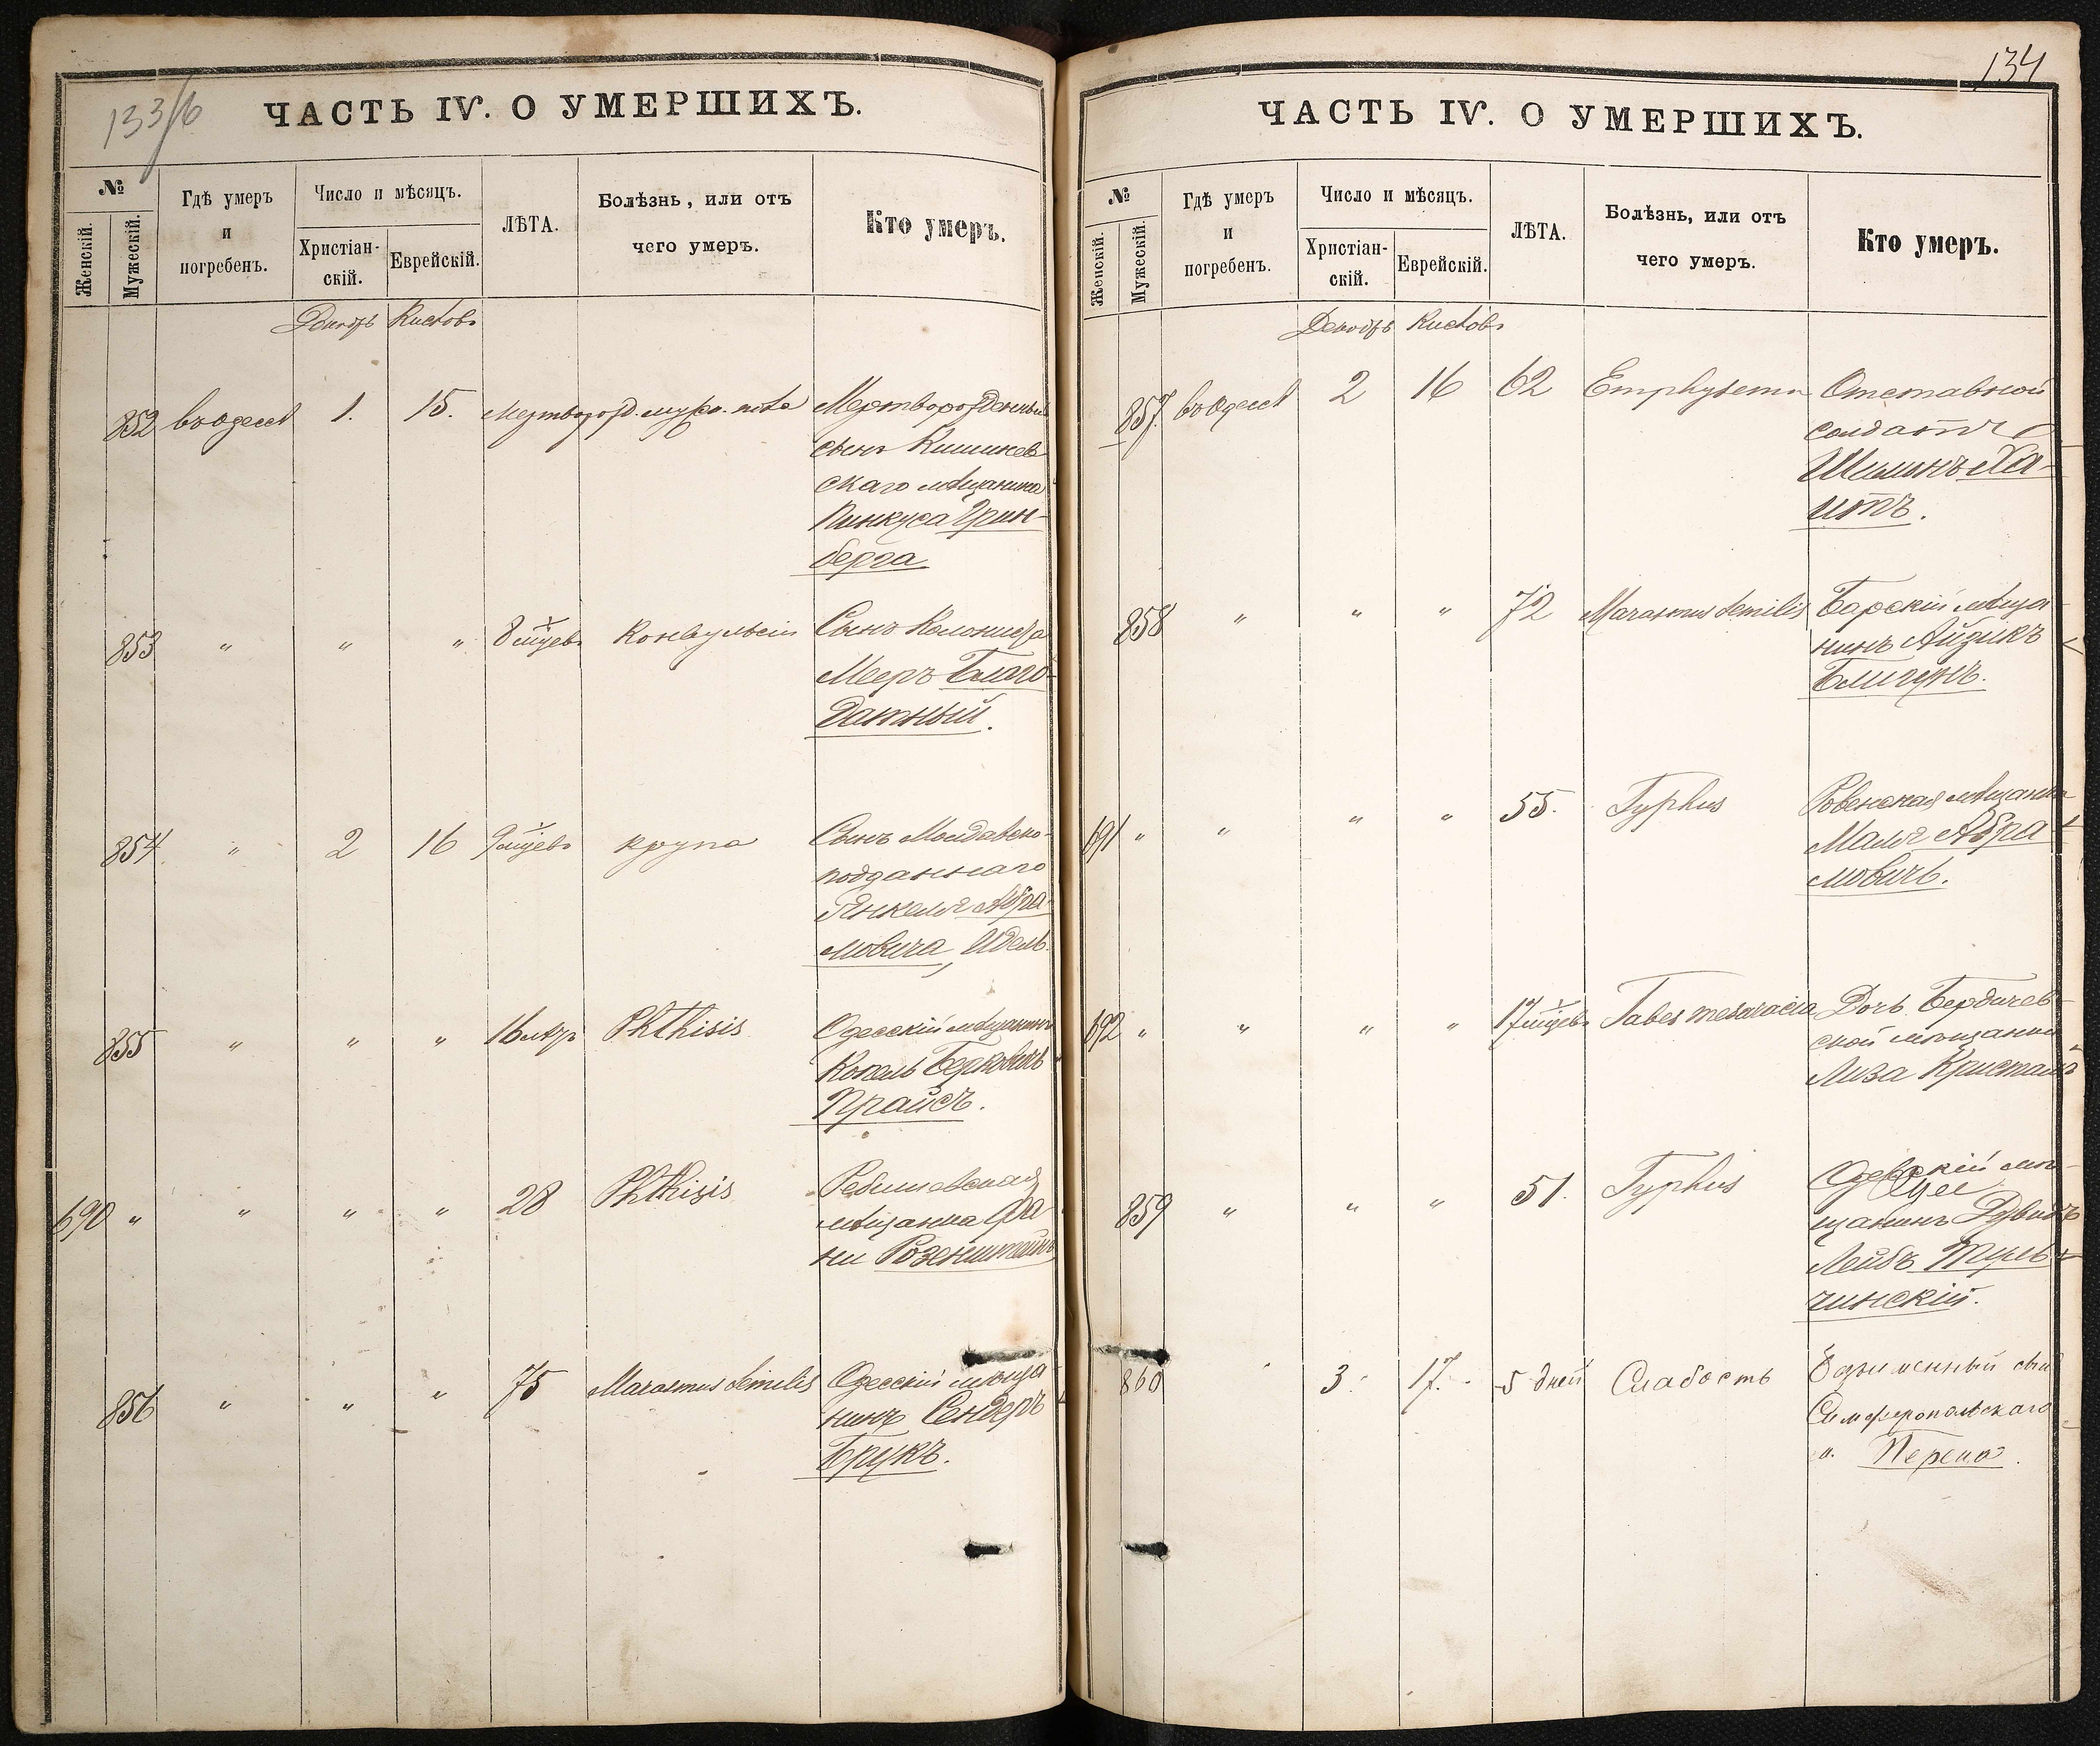 133/б
ЧАСТЬ IV. О УМЕРШИХЪ.
№
Женскій.
Мужескій.
Гдѣ умеръ
и
погребенъ.
Число и мѣсяцъ.
Христіан-
скій.
Еврейскій.
ЛѢТА.
Болѣзнь, или отъ
чего умеръ.
Кто умеръ.
Декабрь Кислевъ
852 въ Одессѣ 1. 15. Мертворожд. муж. пола Мертворожденный
сынъ Кишинев
скаго мѣщанина
Пинкуса Грин-
берга
853 " " " 8 мѣцевъ Конвульсіи Сынъ Колониста
Мееръ Благо-
датный.
854 " 2 16 9 мѣцевъ крупа Сынъ Молдавско-
подданнаго
Янкеля Абра-
мовича, Идель.
855 " " " 16 лѣтъ Phthisis Одесскій мѣщанинъ
Копель Берковичъ
Прайсъ.
690 " " " " 28 Phthisis
мѣщанка Фа-
ни Розенштейнъ
856 " " " 75 Marasmus Senilis Одесскій мѣща
нинъ Сендеръ
Брукъ.
134
ЧАСТЬ IV. О УМЕРШИХЪ.
№
Женскій.
Мужескій.
Гдѣ умеръ
и
погребенъ.
Число и мѣсяцъ.
Христіан-
скій.
Еврейскій.
ЛѢТА.
Болѣзнь, или отъ
чего умеръ.
Кто умеръ.
Декабрь Кислевъ
857. въ Одессѣ 2 16 62 Emphysema Отставной
солдатъ
Шлiомъ Ха-
итъ.
858 " " " 72 Marasmus Senilis Барскій мѣща
нинъ Айзикъ
691 " " " " 55. Typhus Ровенская мѣщанка
Маля Абра-
мовичъ.
692 " " " " 17 мѣцевъ Tabes mesaraica Дочь Бердичев-
ской мѣщанки
Лиза Кристалъ
859 " " " 51. Typhus Одесскій мѣ-
щанинъ Дувидъ
Лейбъ Туль-
чинскій.
860 " 3. 17. 5 дней Слабость Безъименный сынъ
Симферопольскаго
м. Перепа.